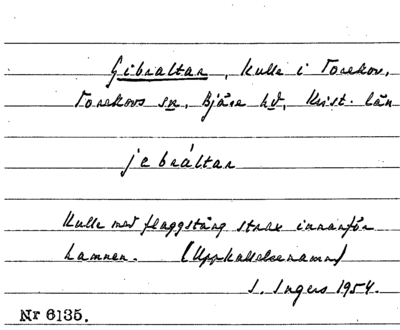 Gibraltar, Kulle i Torekov,
Torekovs sn, Bjäre hd, Krist. län
jebráltar
Kulle med flaggstång strax innanför
hamnen. (Uppkallelsenamn)
I. Ingers 1954.
Nr 6135.